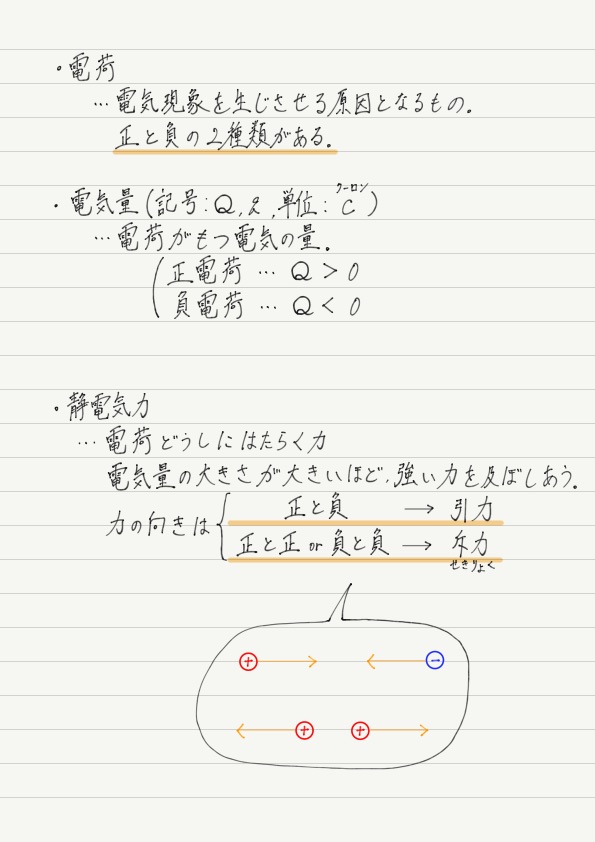 ・電荷
…電気現象を生じさせる原因となるもの。
正と負の2種類がある。
・電気量(記号:Q, q, 単位: C)
クーロン
…電荷がもつ電気の量。
正電荷 … Q > 0
負電荷 … Q < 0
・静電気力
…電荷どうしにはたらく力
電気量の大きさが大きいほど、強い力を及ぼしあう。
力の向きは
正と負 → 引力
正と正 or 負と負 → 斥力
せきりょく
+ −
+ +